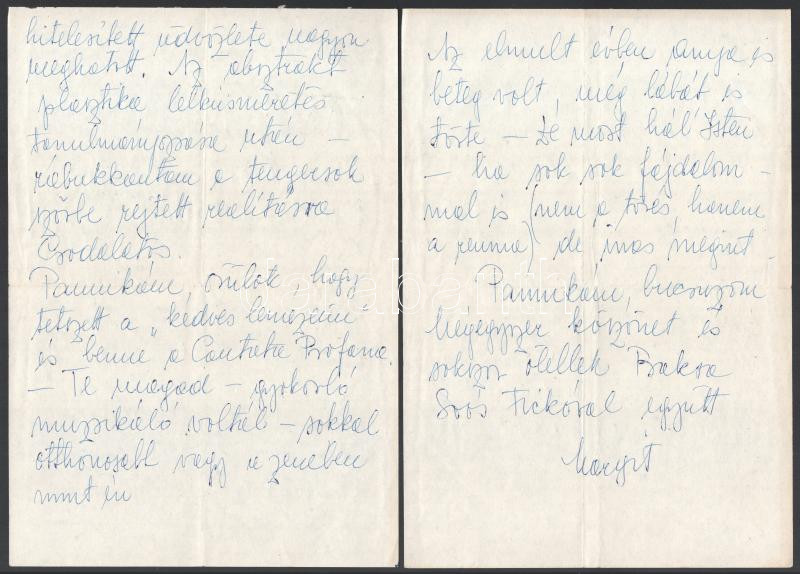 hitelesített üdvözlete nagyon
meghatott. Az absztrakt
plasztika lelkiismeretes
tanulmányozása után –
rábukkantam a tengersok
szőrbe rejtett realitásra
Csodálatos.
Pannikám, örülök, hogy
tetszett a „kedves lemezeim"
és benne a Cantata Profana.
– Te magad – gyakorló
muzsikáló voltál – sokkal
otthonosabb vagy a zenében
mint én
Az elmult évben anya is
beteg volt, még lábát is
törte – de most hál' Isten
– ha sok sok fájdalom –
mal is (nem a törés, hanem
a reuma) de mos megint –
Pannikám, bucsuzom
mégegyszer köszönet és
sokszor ölellek
Soós Fickóval együtt
Margit